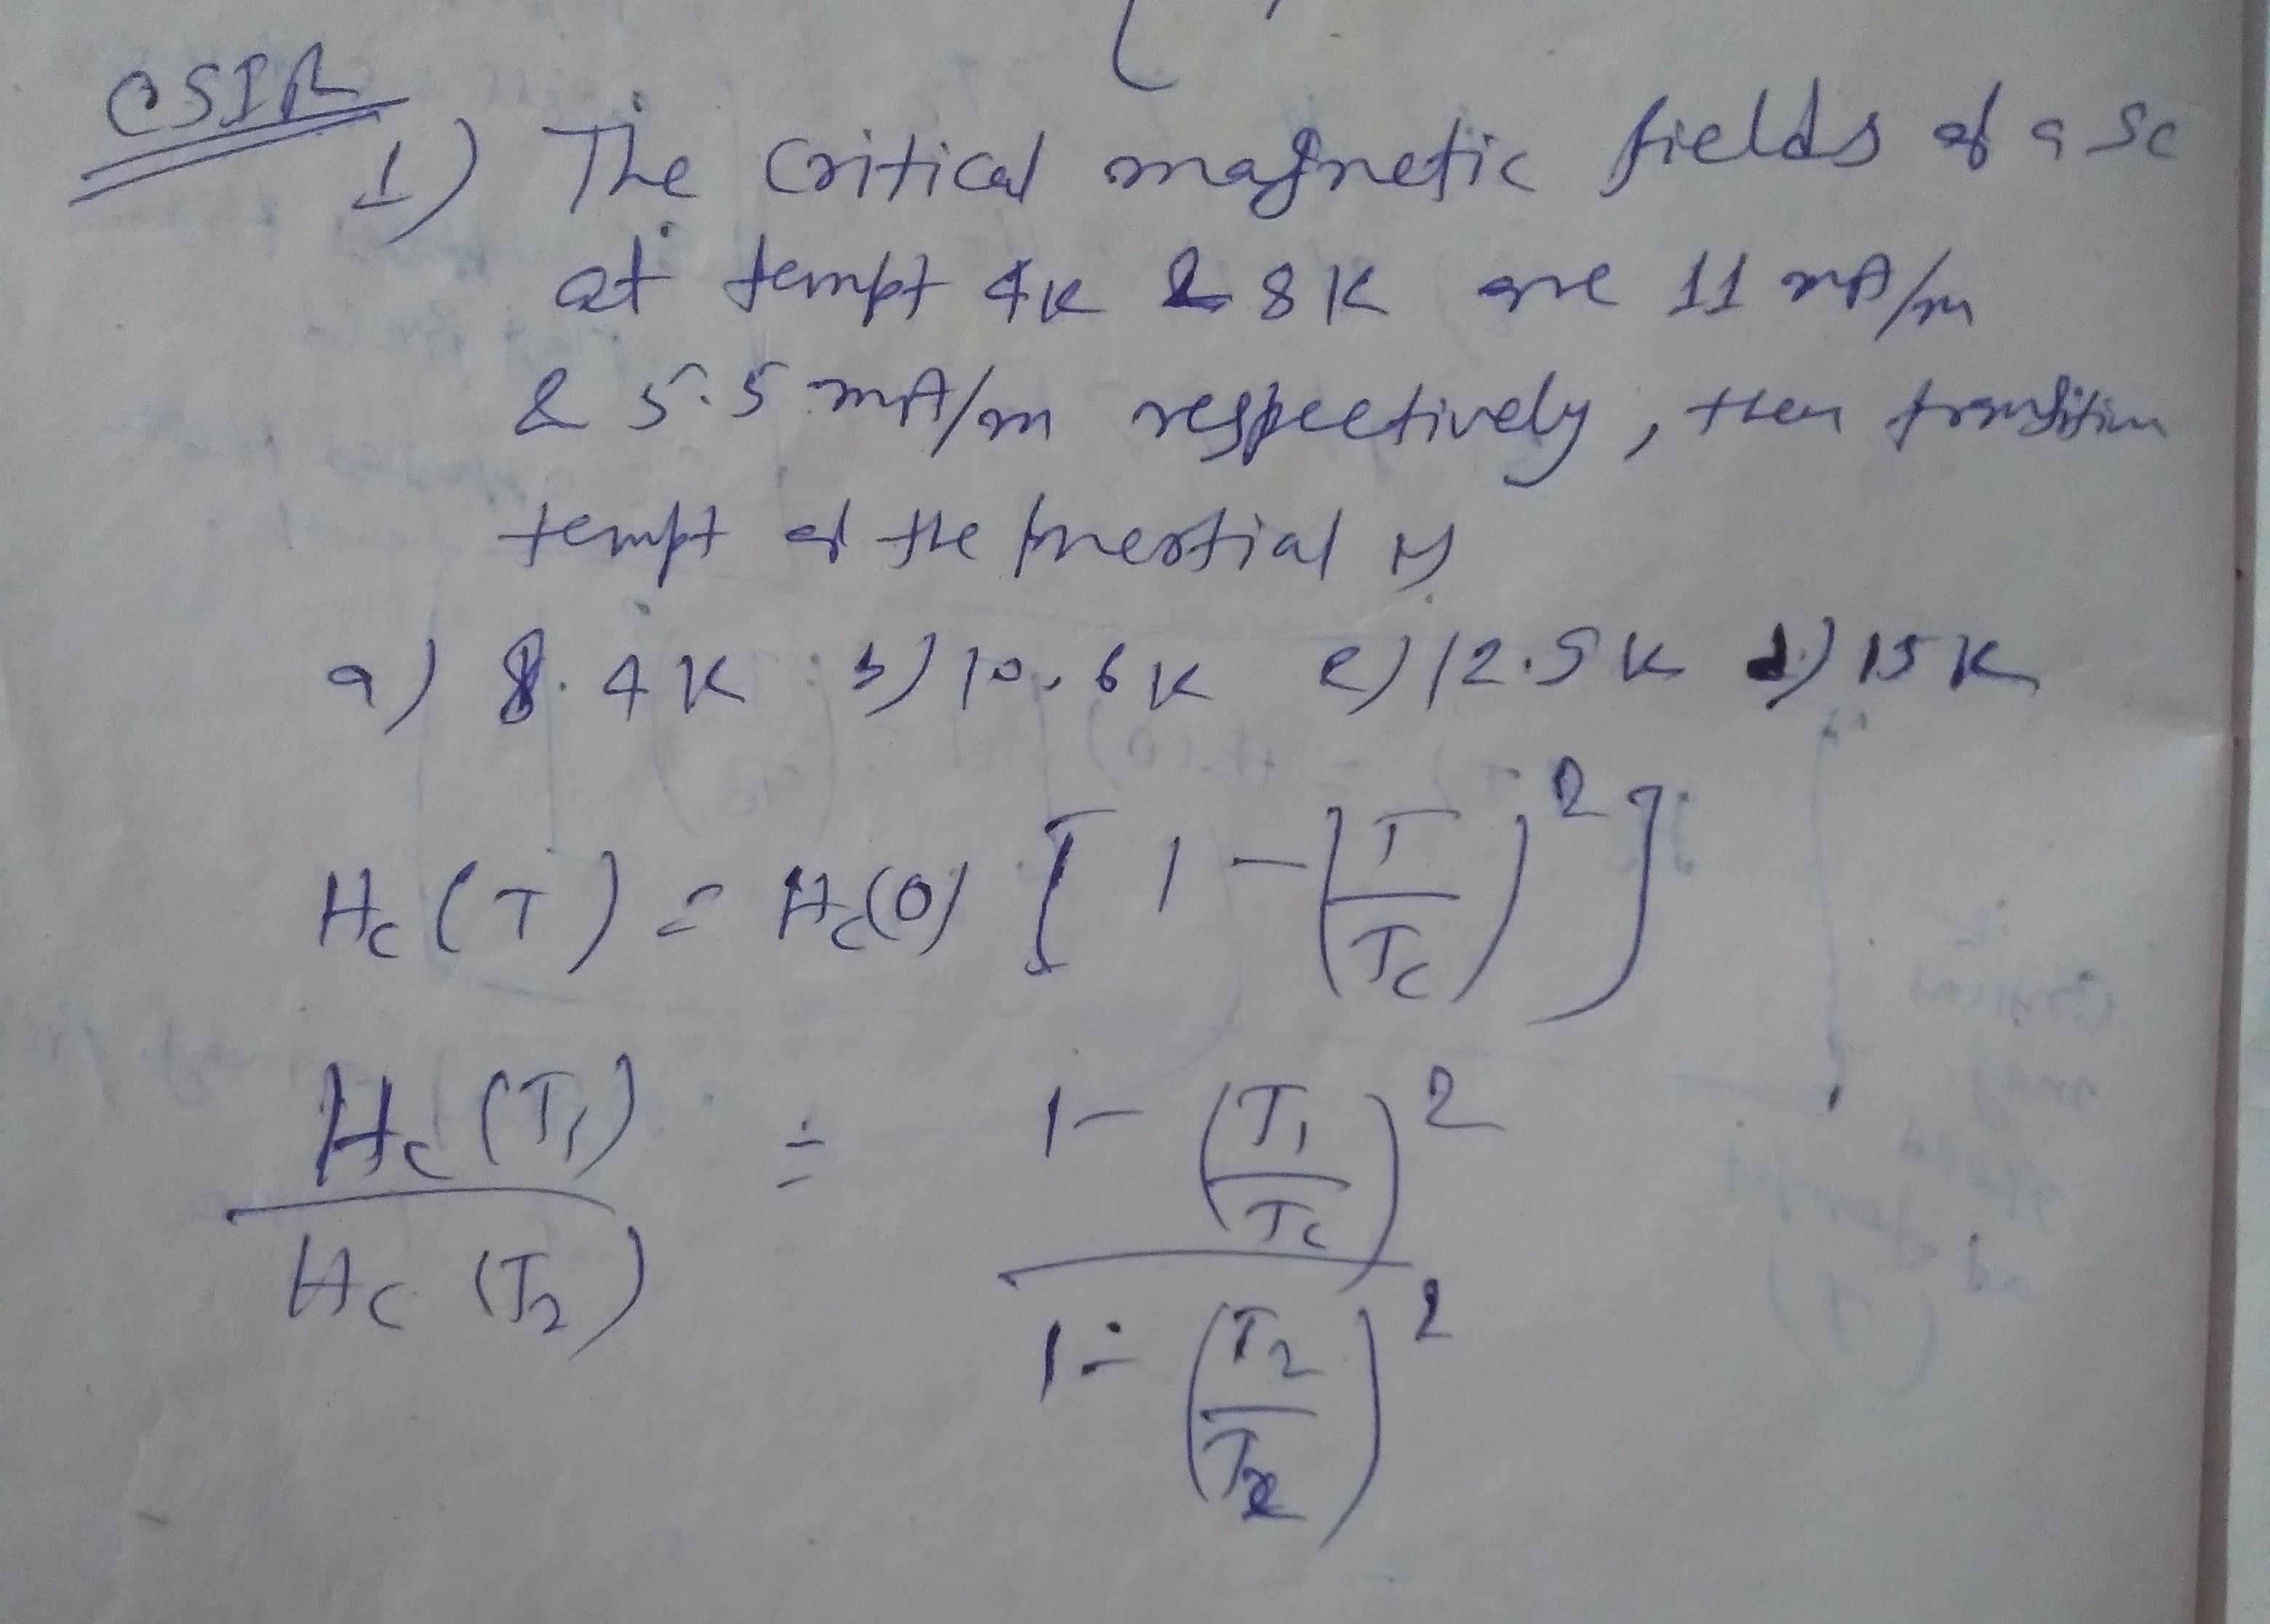 CSIR
1) The critical magnetic fields of a SC
at tempt 4K & 8K are 11 mA/m
& 5.5 mA/m respectively, then transition
tempt of the mertial is
a) 8.4K b) 10.6K c) 12.5K d) 15K
Hc(T) = Hc(0) [1 - (T/Tc)²]
Hc(T₁)/Hc(T₂) = (1 - (T₁/Tc)²)/(1 - (T₂/Tc)²)